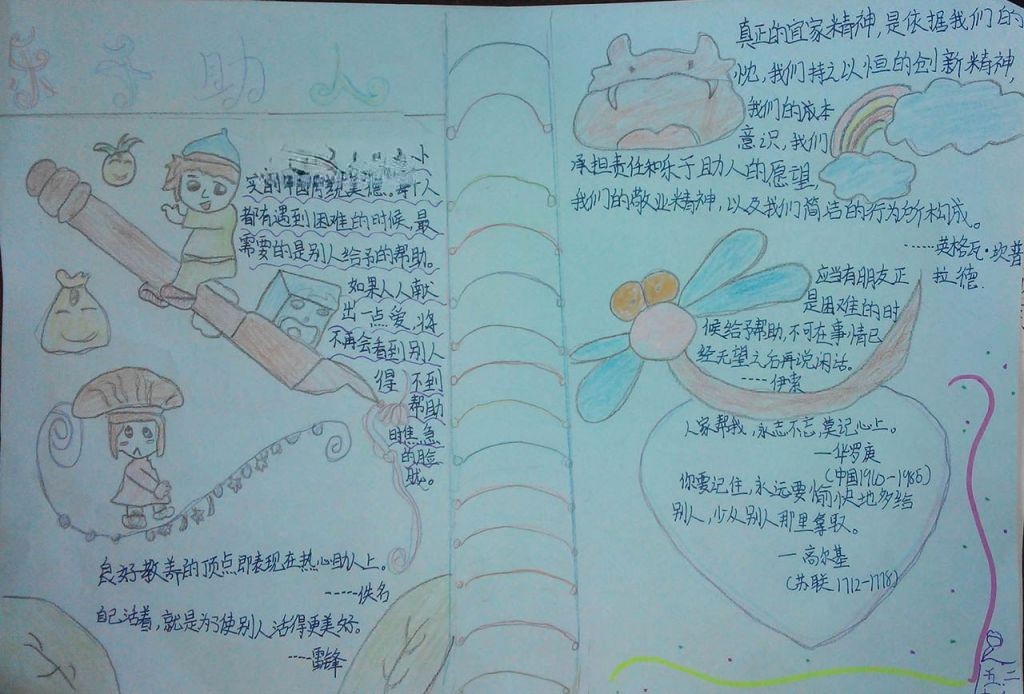 乐于助人
卜
实的中国传统美德,每个人
都有遇到困难的时候,最
需要的是别人给予的帮助。
如果人人献
出一点爱,将
不再会看到别人
得不到
帮助
时焦急
的脸
庞。
良好教养的顶点即表现在热心助人上。
-----佚名
自己活着,就是为了使别人活得更美好。
----雷锋
真正的宜家精神,是依据我们的
忱,我们持之以恒的创新精神,
我们的成本
意识,我们
承担责任和乐于助人的愿望,
我们的敬业精神,以及我们简洁的行为所构成。
------英格瓦·坎普
拉德.
应当有朋友正
是困难的时
候给予帮助,不可在事情已
经无望之后再说闲话。
----伊索
人家帮我,永志不忘,莫记心上。
—华罗庚
(中国1910-1985)
你要记住,永远要愉快地多给
别人,少从别人那里拿取。
—高尔基
(苏联1712-1778)
五.二